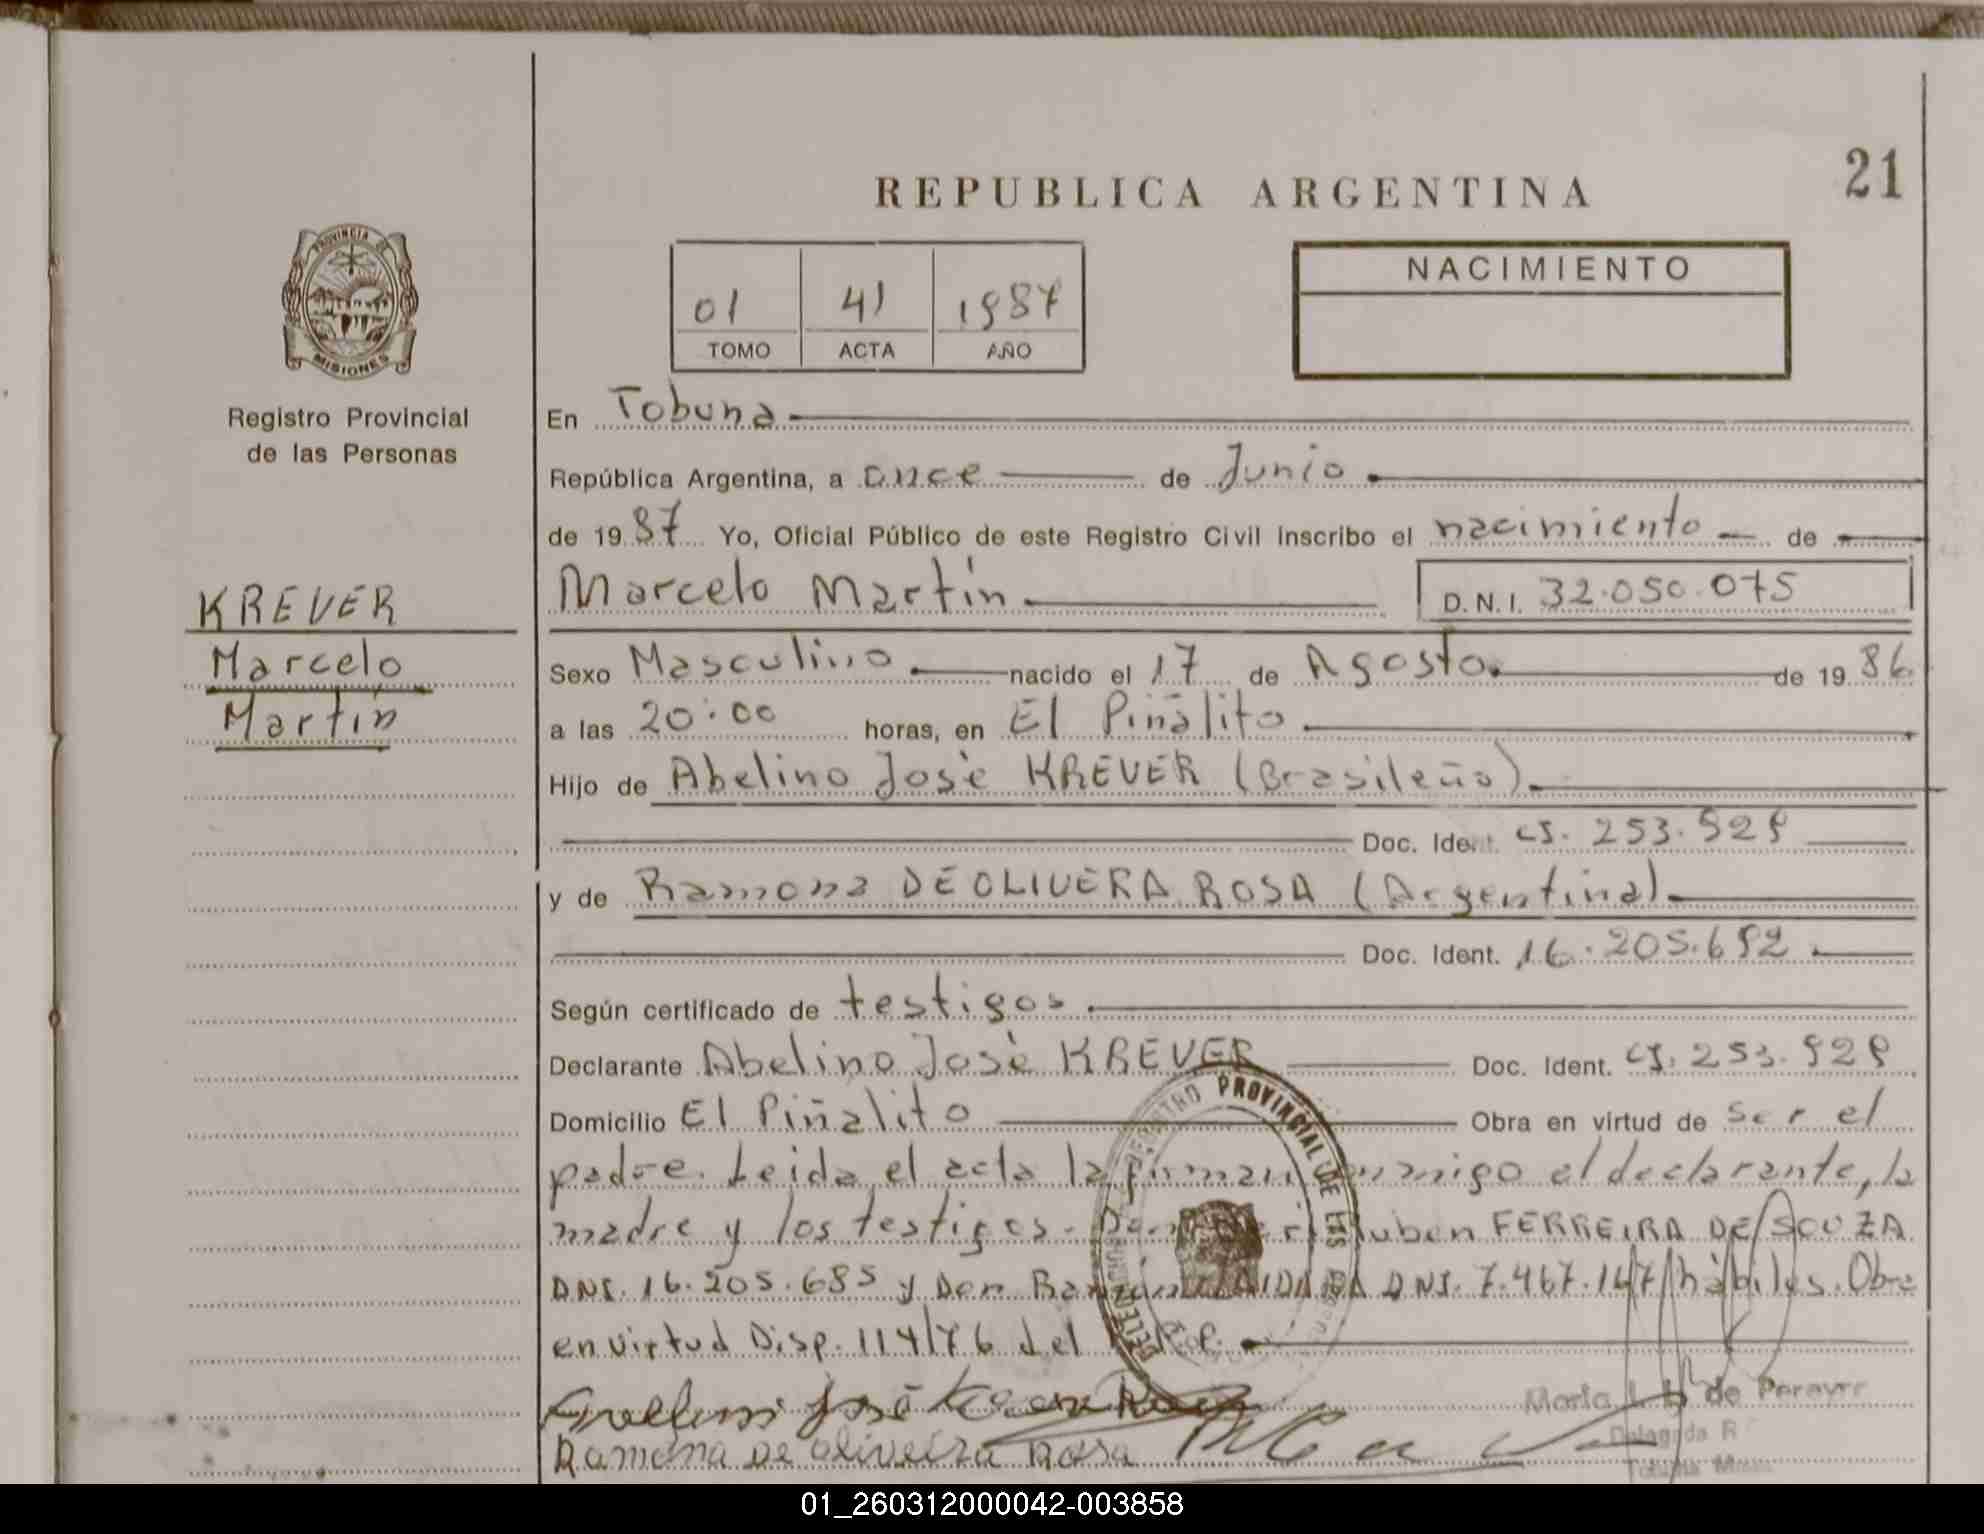 REPUBLICA ARGENTINA
21
PROVINCIA DE
MISIONES
Registro Provincial
de las Personas
01 41 1987
TOMO ACTA AÑO
NACIMIENTO
En Tobuna
República Argentina, a once de Junio
de 1987 Yo, Oficial Público de este Registro Civil inscribo el nacimiento de
KREVER
Marcelo
Martín
Marcelo Martín D.N.I. 32.050.075
Sexo Masculino nacido el 17 de Agosto de 1986
a las 20:00 horas, en El Piñalito
Hijo de Abelino José KREVER (Brasileño)
Doc. Ident. CI. 253.929
y de Ramona DE OLIVERA ROSA (Argentina)
Doc. Ident. 16.205.692
Según certificado de testigos
Declarante Abelino José KREVER Doc. Ident. CI. 253.929
Domicilio El Piñalito Obra en virtud de ser el
padre. Leida el acta la firman conmigo el declarante, la
madre y los testigos. Don Ruben FERREIRA DE SOUZA
DNI. 16.205.685 y Don DNI. 7.467.147 hábiles. Obra
en virtud Disp. 114/76 del
REGISTRO PROVINCIAL DE LAS
José
Ramona De oliveira Rosa
Maria de Pereyra
Delegada R
Tobuna
01_260312000042-003858